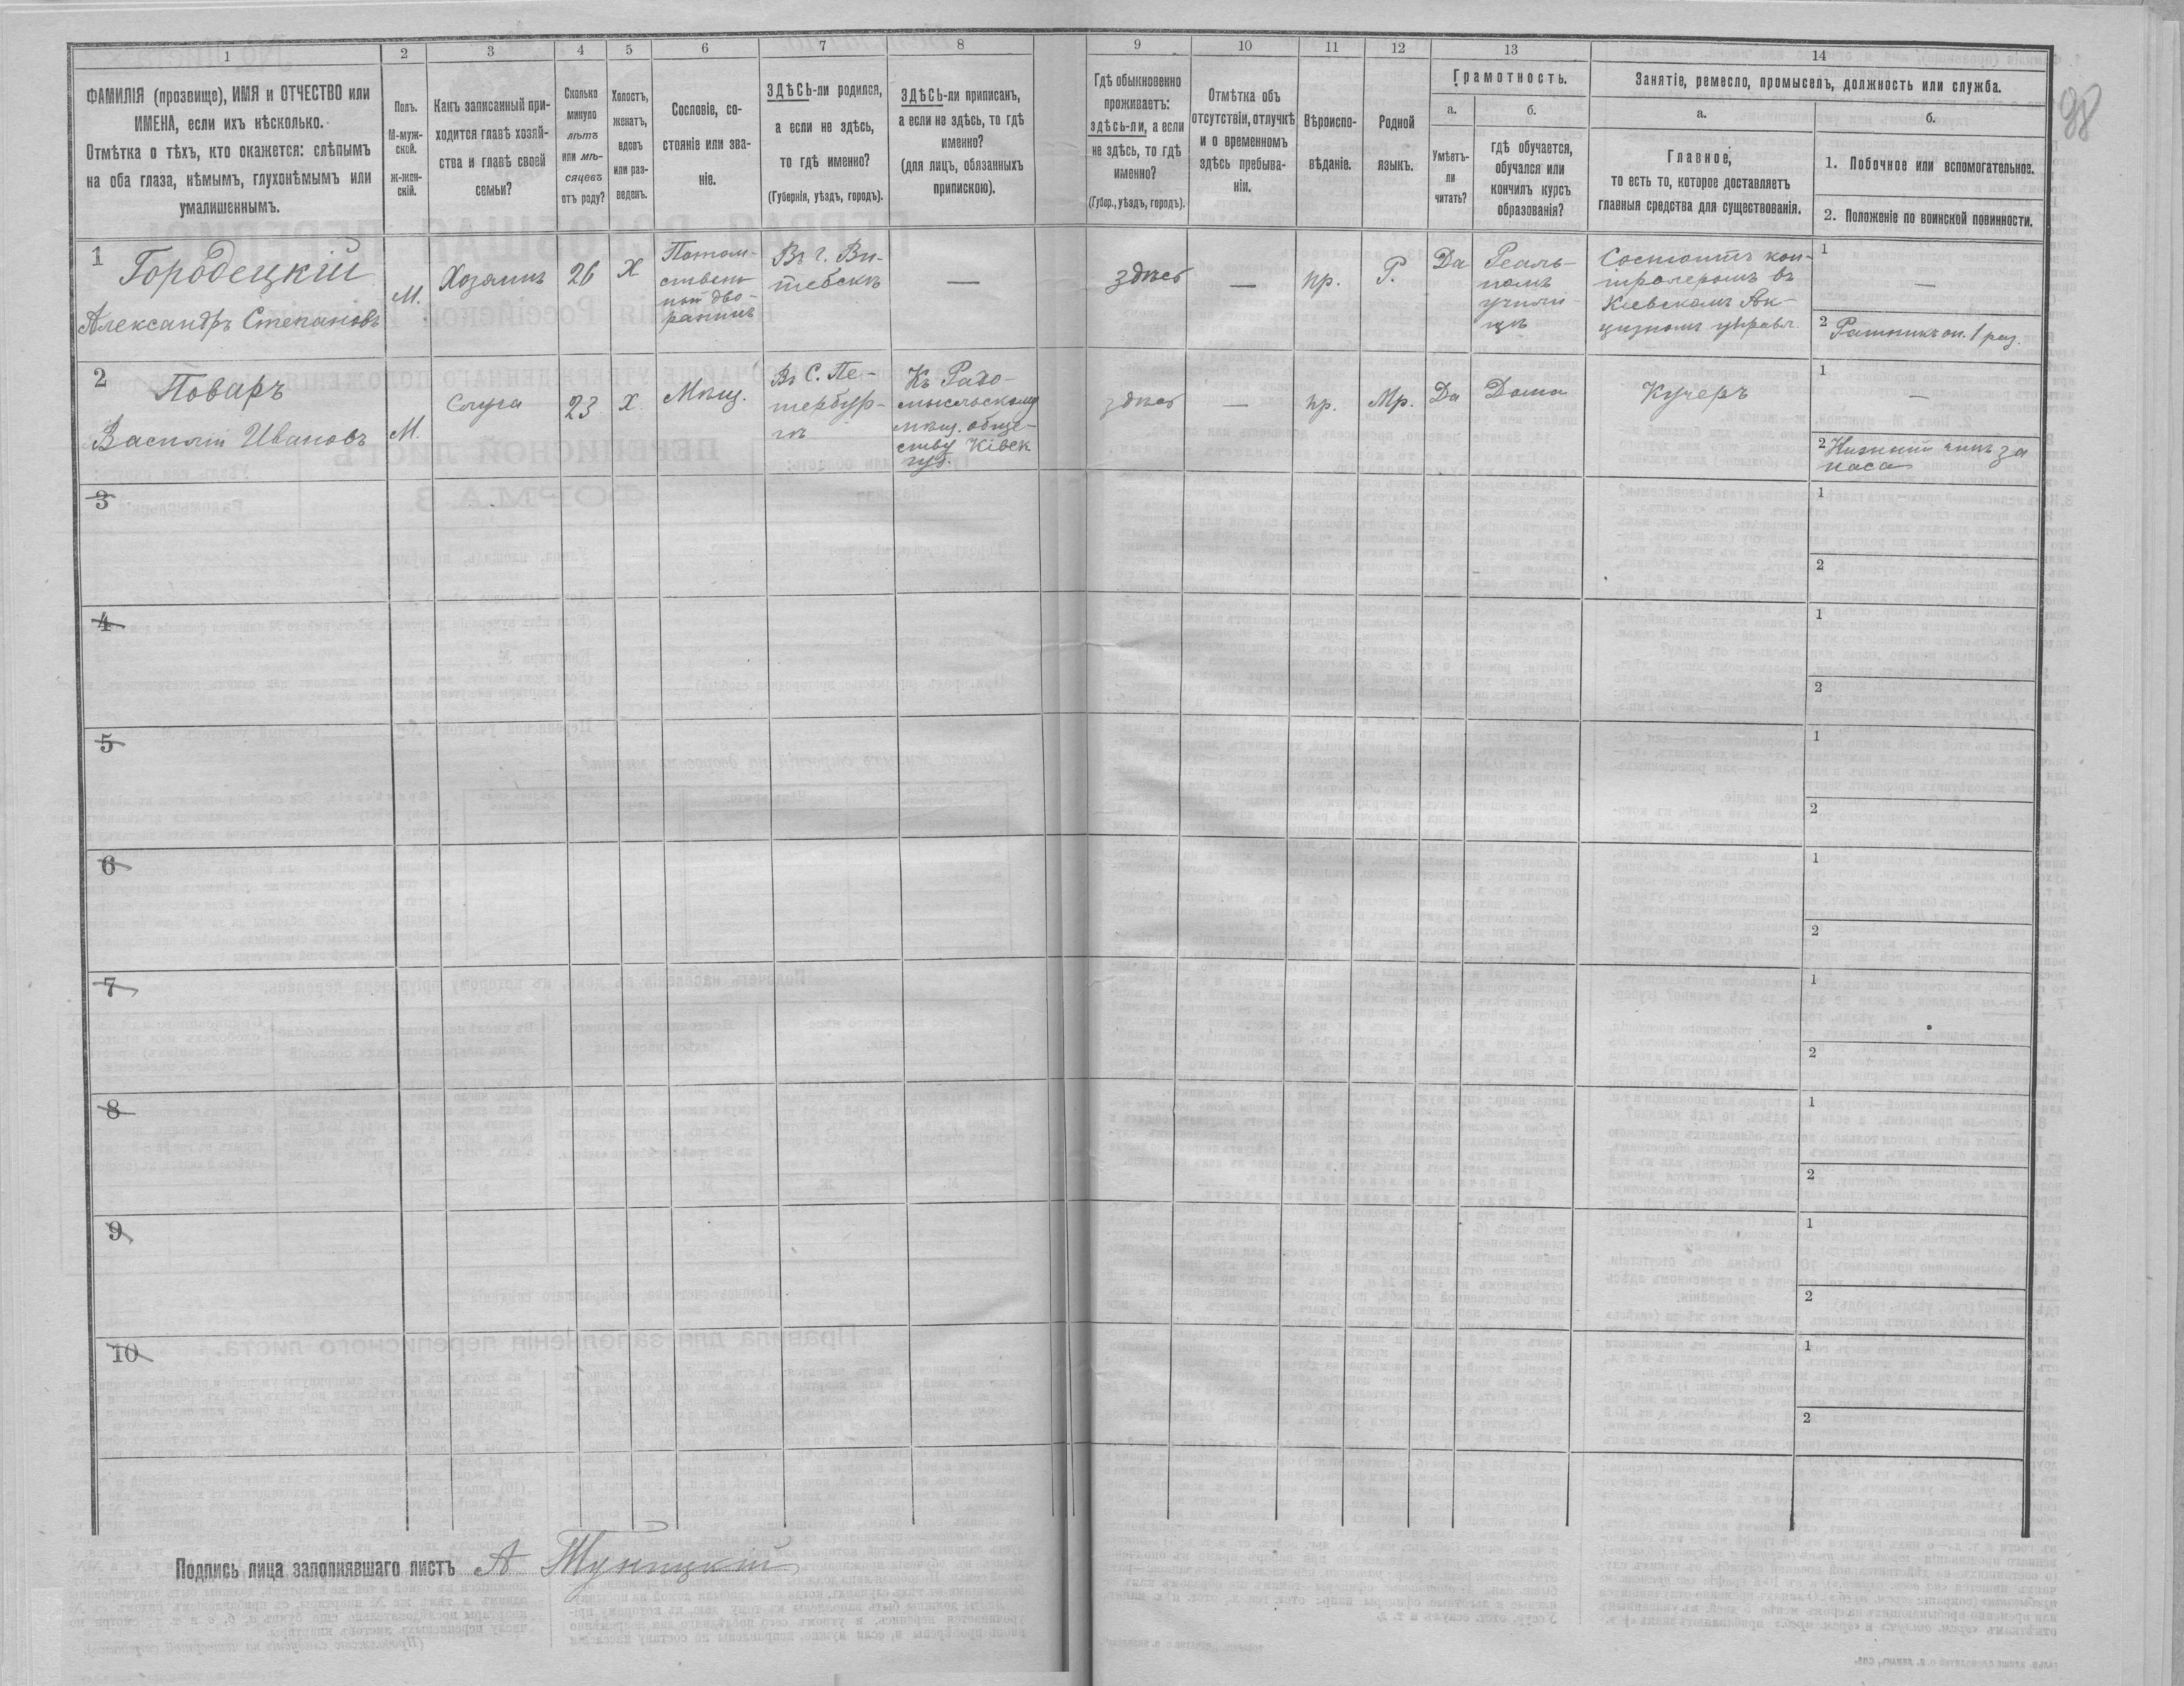 98
1
2
3
4
5
6
7
8
9
10
11
12
13
14
ФАМИЛІЯ (прозвище), ИМЯ и ОТЧЕСТВО или
ИМЕНА, если ихъ нѣсколько.
Отмѣтка о тѣхъ, кто окажется: слѣпымъ
на оба глаза, нѣмымъ, глухонѣмымъ или
умалишеннымъ.
Полъ.
М-муж-
ской.
ж-жен-
скій.
Какъ записанный при-
ходится главѣ хозяй-
ства и главѣ своей
семьи?
Сколько
минуло
лѣтъ
или мѣ-
сяцевъ
отъ роду?
Холостъ,
женатъ,
вдовъ
или раз-
веденъ.
Сословіе, со-
стояніе или зва-
ніе.
ЗДѢСЬ-ли родился,
а если не здѣсь,
то гдѣ именно?
(Губернія, уѣздъ, городъ).
ЗДѢСЬ-ли приписанъ,
а если не здѣсь, то гдѣ
именно?
(для лицъ, обязанныхъ
припискою).
Гдѣ обыкновенно
проживаетъ:
здѣсь-ли, а если
не здѣсь, то гдѣ
именно?
(Губер., уѣздъ, городъ).
Отмѣтка объ
отсутствіи, отлучкѣ
и о временномъ
здѣсь пребыва-
ніи.
Вѣроиспо-
вѣданіе.
Родной
языкъ.
Грамотность.
а.
Умѣетъ-
ли
читать?
б.
гдѣ обучается,
обучался или
кончилъ курсъ
образованія?
Занятіе, ремесло, промыселъ, должность или служба.
а.
Главное,
то есть то, которое доставляетъ
главныя средства для существованія.
б.
1. Побочное или вспомогательное.
2. Положеніе по воинской повинности.
1
Городецкій
Александръ Степановъ
М.
Хозяинъ
26
Х
Потом-
ствен-
ный дво-
рянинъ
Въ г. Ви-
тебскѣ
—
здѣсь
—
пр.
Р.
Да
Реаль-
номъ
учили-
щѣ
Состоитъ кон-
тролеромъ въ
Кіевскомъ Ак-
цизномъ управл.
1
—
2 Ратникъ оп. 1 раз.
2
Поваръ
Василій Ивановъ
М.
Слуга
23
Х.
Мѣщ.
Въ С. Пе-
тербур-
гѣ
Къ Радо-
мысльскому
мѣщ. обще-
ству Кіевск
губ.
здѣсь
—
пр.
Мр.
Да
Дома
Кучеръ
1
—
2 Нижній чинъ за
паса
3
1
2
4
1
2
5
1
2
6
1
2
7
1
2
8
1
2
9
1
2
10
1
2
Подпись лица заполнявшаго листъ А